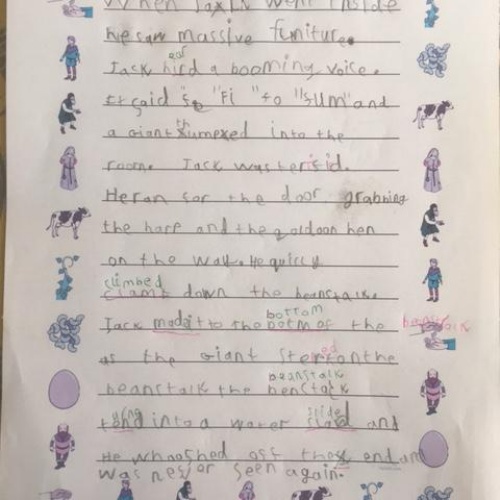 When Jack went inside
he saw massive funiture.
ear
Jack hird a booming voice.
It said "fe "Fi "fo "fum" and
th
a giant thumped into the
room. Jack was terisid.
He ran for the door grabning
the harp and the goldoon hen
on the way. He quicly
climbed
clamt down the beanstalk.
bottom
Jack mad it to the botm of the beanstalk
as the Giant step on the
beanstalk
beanstalk the benstalk
slide
into a water and
He whooshed off the end and
was never seen again.